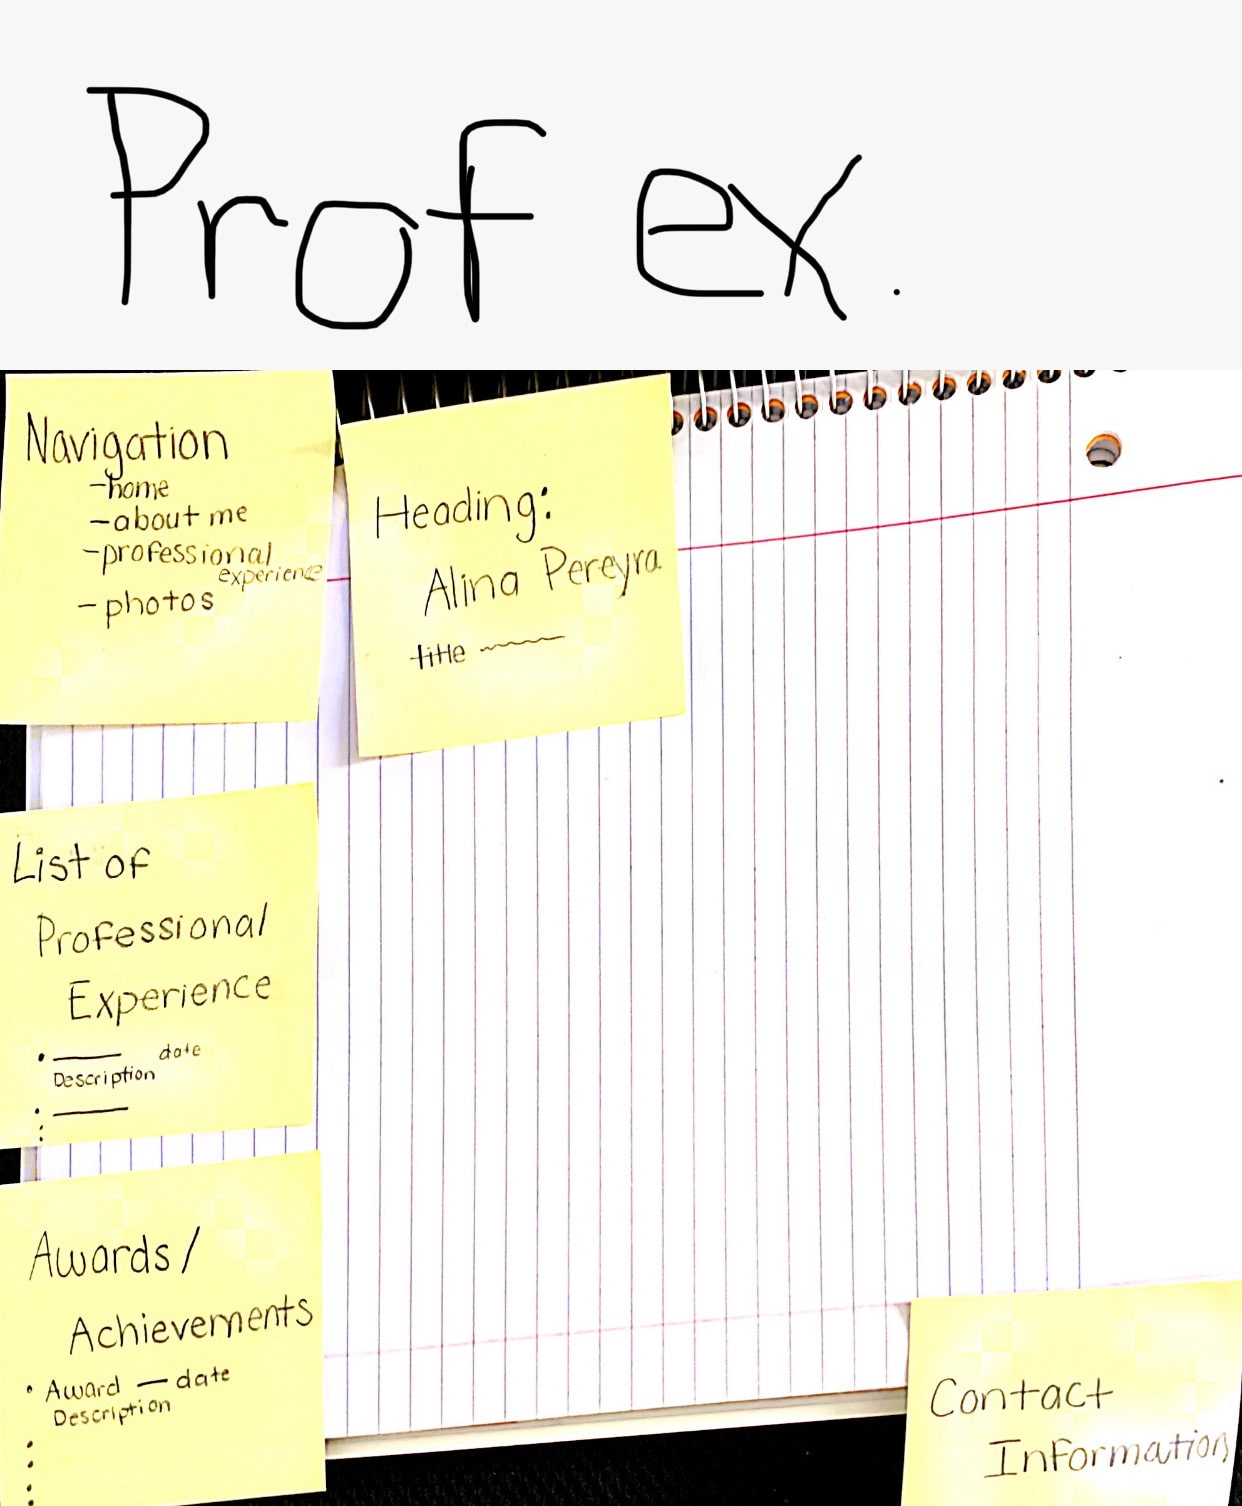 Prof ex.
Navigation
-home
-about me
-professional
experience
-photos
Heading:
Alina Pereyra
title
List of
Professional
Experience
• date
Description
•
Awards/
Achievements
• Award — date
Description
Contact
Information